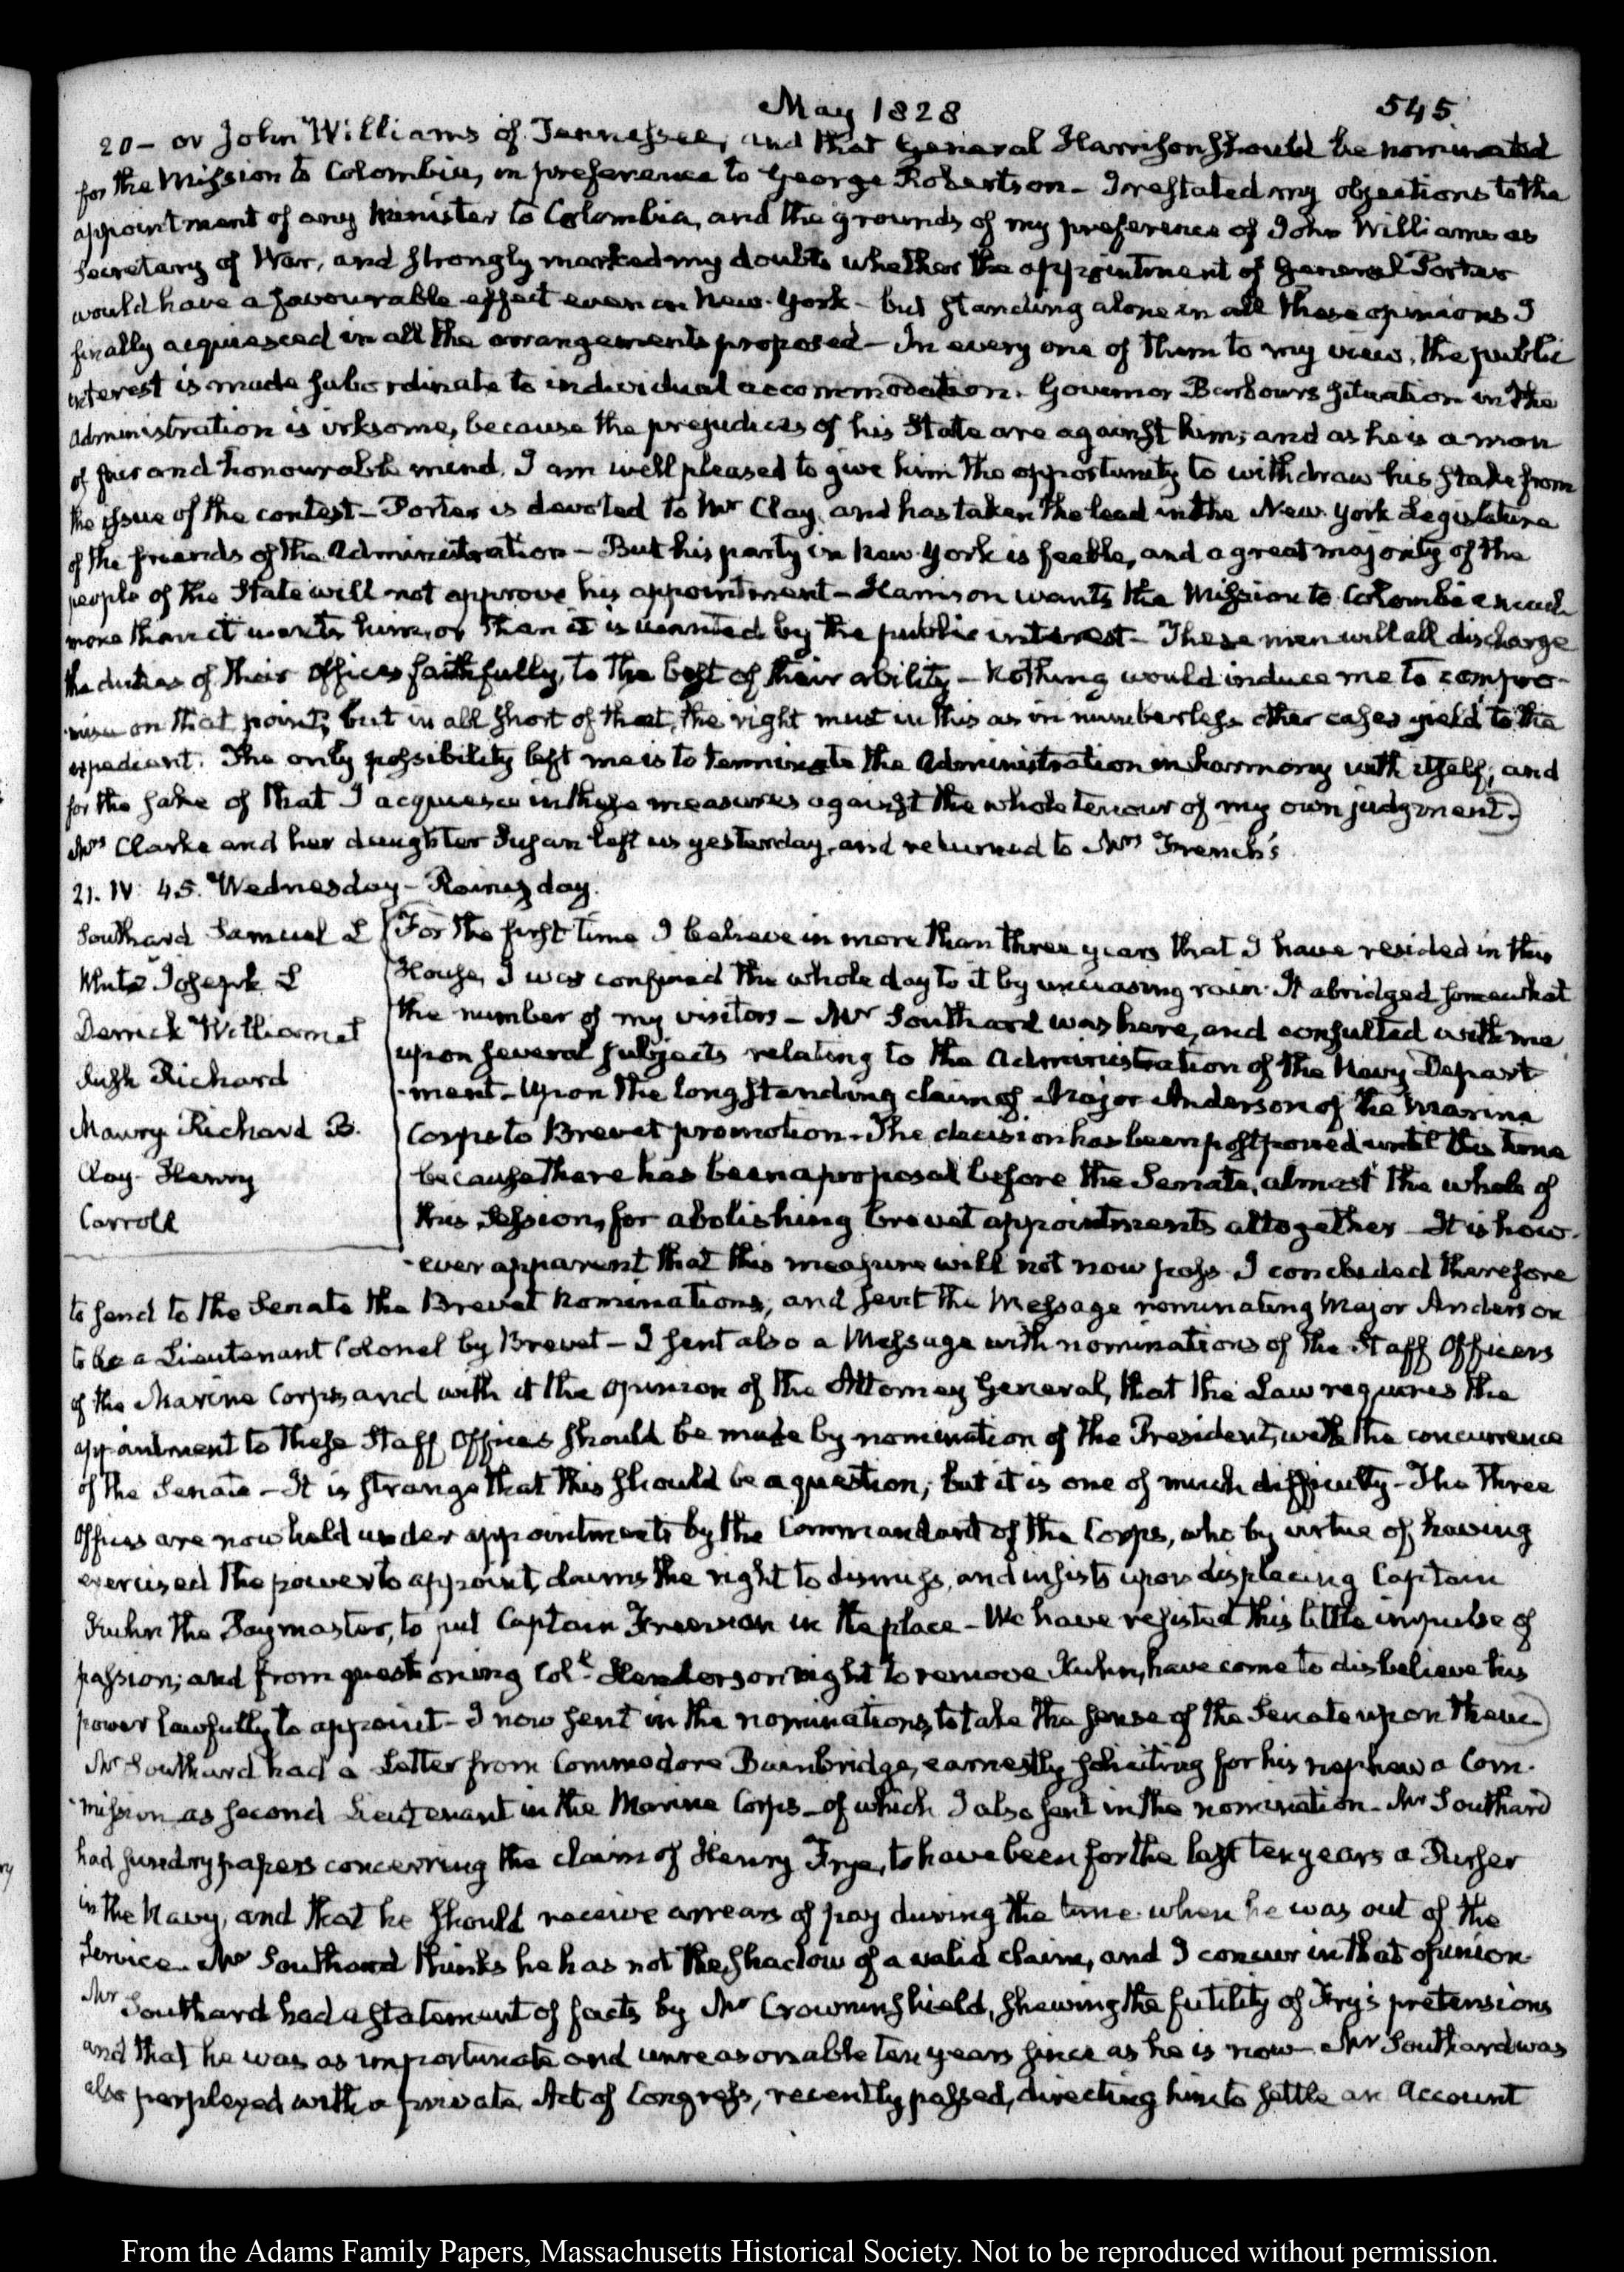 May 1828
545
20 - or John Williams of Tennessee, and that General Harrison should be nominated
for the Mission to Colombia, in preference to George Robertson - I restated my objections to the
appointment of any Minister to Colombia, and the grounds of my preference of John Williams as
Secretary of War, and strongly marked my doubts whether the appointment of General Porter
would have a favourable effect even in New-York - but standing alone in all these opinions I
finally acquiesced in all the arrangements proposed - In every one of them to my view, the public
interest is made subordinate to individual accommodation. Governor Barbours situation in the
Administration is irksome, because the prejudices of his State are against him; and as he is a man
of fair and honourable mind, I am well pleased to give him the opportunity to withdraw his stake from
the issue of the contest - Porter is devoted to Mr Clay, and has taken the lead in the New-York Legislature
of the friends of the Administration - But his party in New-York is feeble, and a great majority of the
people of the State will not approve his appointment - Harrison wants the Mission to Colombia much
more than it wants him, or than it is wanted by the public interest - These men will all discharge
the duties of their Offices faithfully, to the best of their ability - Nothing would induce me to compro-
-mise on that point; but in all short of that, the right must in this as in numberless other cases yield to the
expedient. The only possibility left me is to terminate the Administration in harmony with itself; and
for the sake of that I acquiesce in these measures against the whole tenour of my own judgment.
Mrs Clarke and her daughter Susan left us yesterday, and returned to Mrs French's
21. IV: 45. Wednesday - Rainy day.
Southard Samuel L
White Joseph L
Derrick William S
Rush Richard
Maury Richard B.
Clay- Henry
Carroll
For the first time I believe in more than three years that I have resided in this
House, I was confined the whole day to it by unceasing rain. It abridged somewhat
the number of my visitors - Mr Southard was here, and consulted with me
upon several subjects relating to the Administration of the Navy Depart
-ment - Upon the long standing claim of Major Anderson of the Marine
Corps to Brevet promotion - The decision has been postponed until this time
because there has been a proposal before the Senate, almost the whole of
this Session, for abolishing brevet appointments altogether - It is how-
-ever apparent that this measure will not now pass. I concluded therefore
to send to the Senate the Brevet Nominations, and sent the Message nominating Major Anderson
to be a Lieutenant Colonel by Brevet - I sent also a Message with nominations of the Staff Officers
of the Marine Corps, and with it the Opinion of the Attorney General, that the Law requires the
appointment to these Staff Offices should be made by nomination of the President, with the concurrence
of the Senate - It is strange that this should be a question; but it is one of much difficulty - The three
Offices are now held under appointments by the Commandant of the Corps, who by virtue of having
exercised the power to appoint, claims the right to dismiss, and insists upon displacing Captain
Kuhn the Paymaster, to put Captain Freeman in the place - We have resisted this little impulse of
passion; and from questioning Coll. Henderson right to remove Kuhn, have come to disbelieve his
power lawfully to appoint - I now sent in the nominations, to take the sense of the Senate upon them.
Mr Southard had a Letter from Commodore Bainbridge, earnestly soliciting for his nephew a Com-
-mission as second Lieutenant in the Marine Corps - of which I also sent in the nomination - Mr Southard
had sundry papers concerning the claim of Henry Frye, to have been for the last ten years a Purser
in the Navy, and that he should receive arrears of pay during the time when he was out of the
Service - Mr Southard thinks he has not the shadow of a valid claim, and I concur in that opinion.
Mr Southard had a statement of facts by Mr Crowninshield, shewing the futility of Fry's pretensions
and that he was as importunate and unreasonable ten years since as he is now - Mr Southard was
also perplexed with a private Act of Congress, recently passed, directing him to settle an Account
From the Adams Family Papers, Massachusetts Historical Society. Not to be reproduced without permission.